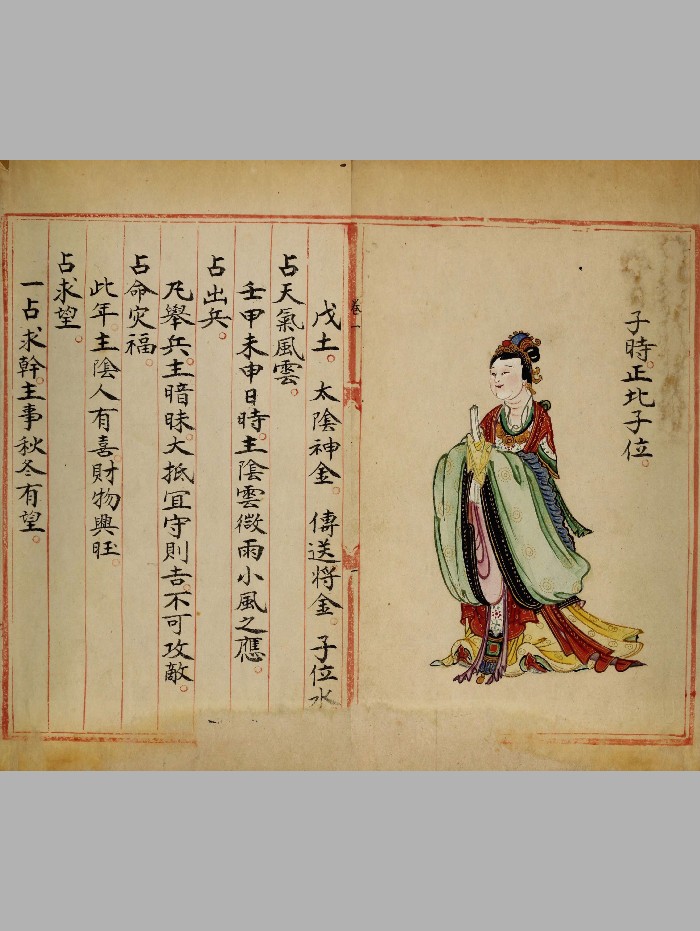 子時正北子位。
卷一
一
戊土。 太陰神金。 傳送將金。 子位水
占天氣風雲。
壬甲未申日時。主陰雲微雨小風之應。
占出兵。
凢舉兵。主暗昧。大抵宜守則吉。不可攻敵。
占命灾福。
此年。主陰人有喜。財物興旺。
占求望。
一占求幹。主事秋冬有望。